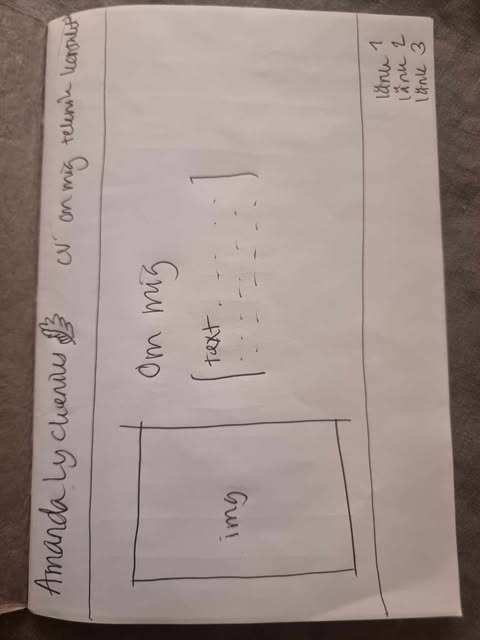 Amanda Lychenius CV om mig teknik kontakt
Om mig
[text
]
img
länk 1
länk 2
länk 3